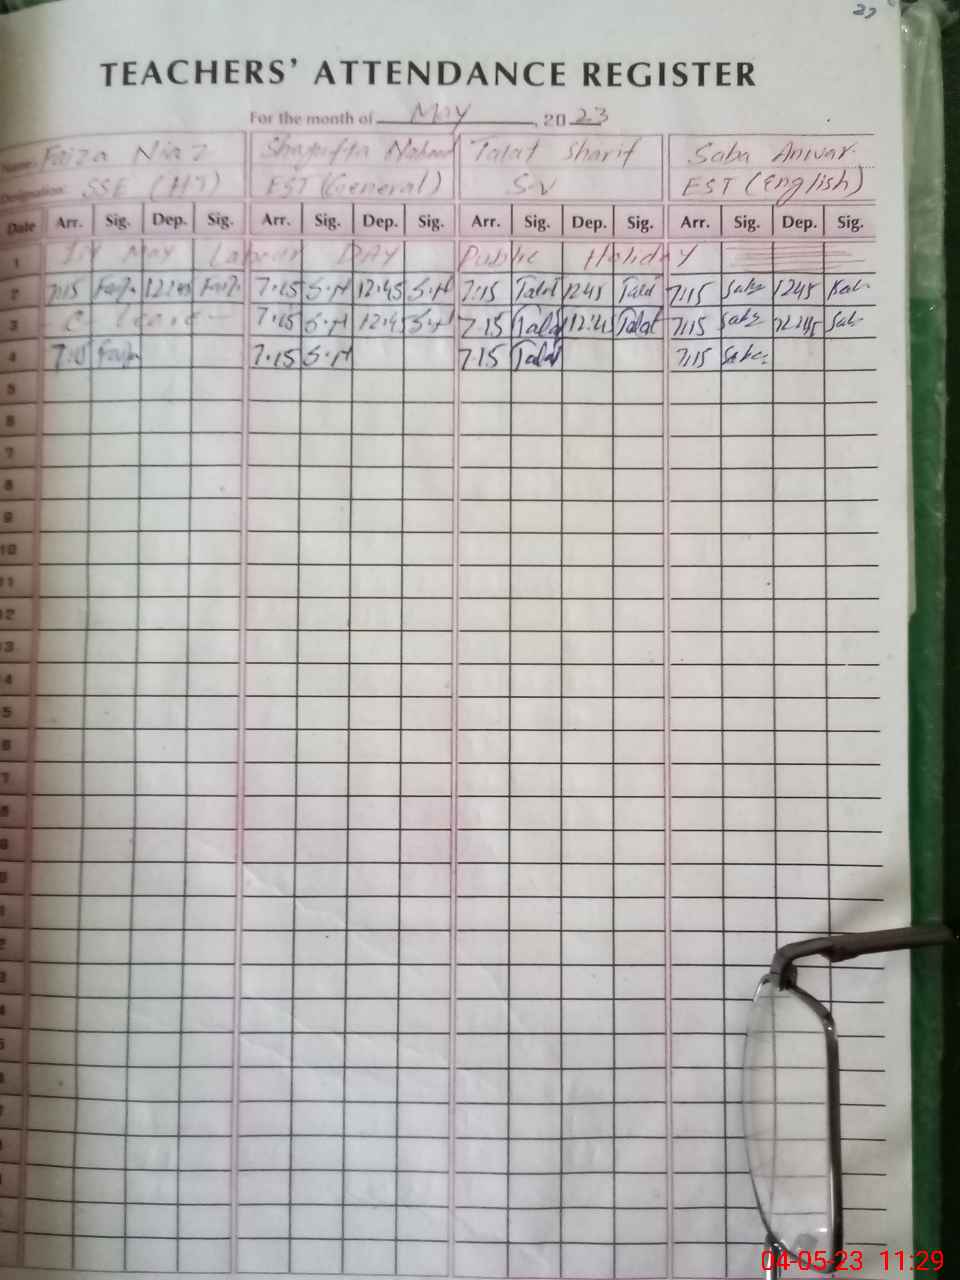 27
TEACHERS' ATTENDANCE REGISTER
For the month of May, 2023
Name: Faiza Niaz Shagufta Naheed Talat Sharif Saba Anwar
Designation: SSE (HT) EST (General) S.V EST (English)
Date Arr. Sig. Dep. Sig. Arr. Sig. Dep. Sig. Arr. Sig. Dep. Sig. Arr. Sig. Dep. Sig.
1 1st May Labour DAY Public Holiday
2 7:15 12:45 7.15 S.N 12.45 S.N 7:15 Talat 1245 Talat 7:15 Saba 1245 Saba
3 C-Leave - 7.15 S.N 12.45 S.N 7.15 Talat 12:45 Talat 7:15 Saba 12:45 Saba
4 7:15 7.15 S.N 7.15 Talat 7:15 Saba
5
6
7
8
9
10
11
12
3
4
5
6
7
8
9
0
1
2
3
4
5
04-05-23 11:29